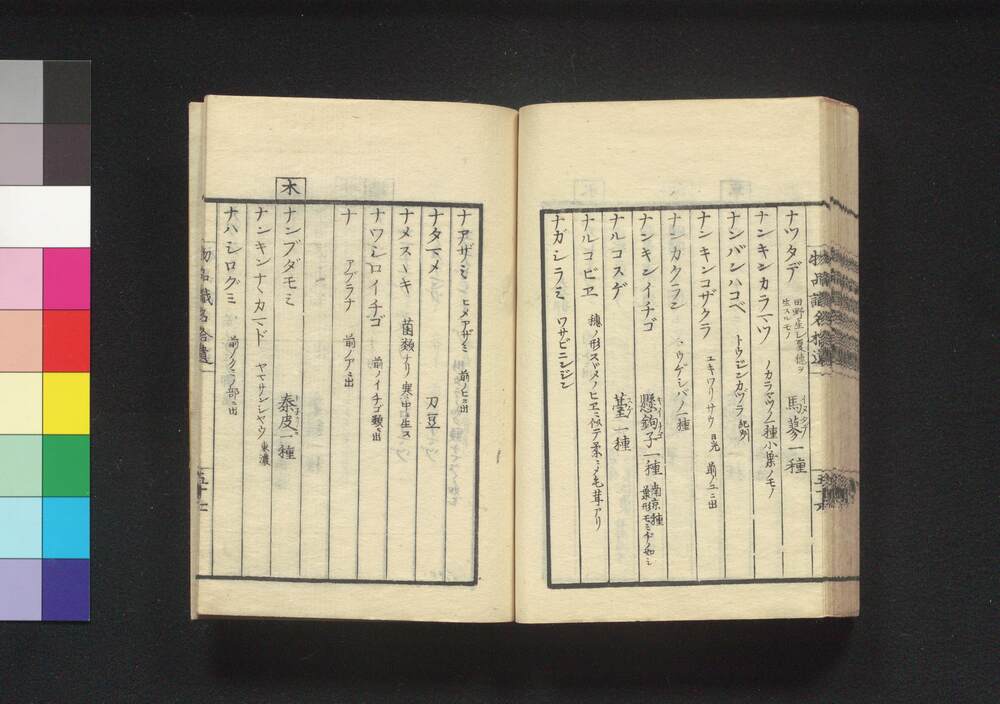 ナツタデ 田野生シ夏穂ヲ生スルモノ 馬蓼一種
ナンキンカラマツ ノカラマツノ一種小葉ノモノ
ナンバンハコベ トウジンカヅラ 紀州
ナンキンコザクラ ユキワリサウ 日光 前ノユニ出
ナンカクラン ウケンバノ一種
ナンキンイチゴ 懸鉤子一種 南京種 葉形モミヂノ如シ
ナルコスゲ 薹一種
ナルコビヱ 穂ノ形スヾメノヒヱニ似テ柔ニメ毛茸アリ
ナガシラミ ワサビニンジン
物品識名拾遺
ナアザミ ヒメアザミ 前ノヒニ出
ナタマメ 刀豆
ナメスヽキ 菌類ナリ寒中ニ生ス
ナワシロイチゴ 前ノイチゴ類ニ出
ナ アブラナ 前ノアニ出
木
ナンブダモミ 秦皮一種
ナンキンナヽカマド ヤマサンシヤウ 東濃
ナハシログミ 前ノグミノ部ニ出
物品識名拾遺